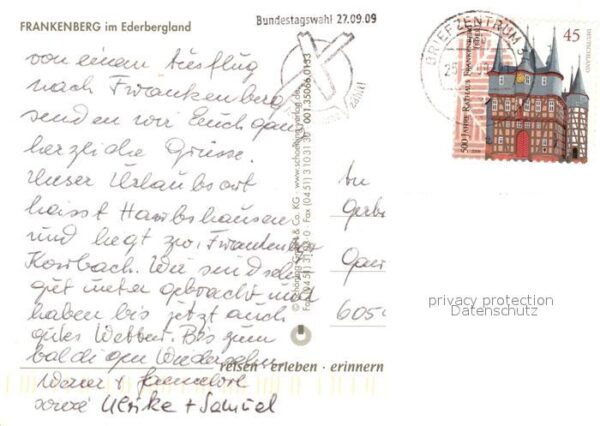 FRANKENBERG im Ederbergland
Bundestagswahl 27.09.09
BRIEFZENTRUM
45
DEUTSCHLAND
500 Jahre Rathaus Frankenberg (Eder)
von einem Ausflug
nach Frankenberg
senden wir Euch ganz
herzliche Grüsse.
Unser Urlaubsort
heisst Harbshausen
und liegt zw. Frankenberg
Korbach. Wir sind sehr
gut untergebracht und
haben bis jetzt auch
gutes Wetter. Bis zum
baldigen Wiedersehen
Werner + Hannelore
sowie Ulrike + Samuel
© Schöning GmbH & Co. KG · www.schoening-verlag.de
Fax (0451) 31 03 1 30 001.35066.0133
An
605
privacy protection
Datenschutz
reisen · erleben · erinnern